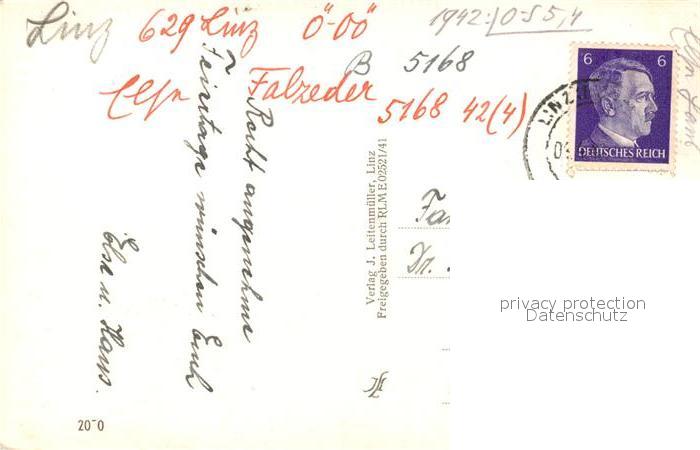 Linz 629 Linz Ö-OÖ 1942:
B 5168
Falzeder
5168 42(4)
Recht angenehme
Feiertage wünschen Euch
Else u. Hans.
Verlag J. Leitenmüller, Linz
Freigegeben durch RLM E 02521/41
6 6
DEUTSCHES REICH
LINZ
Dr.
privacy protection
Datenschutz
20-0